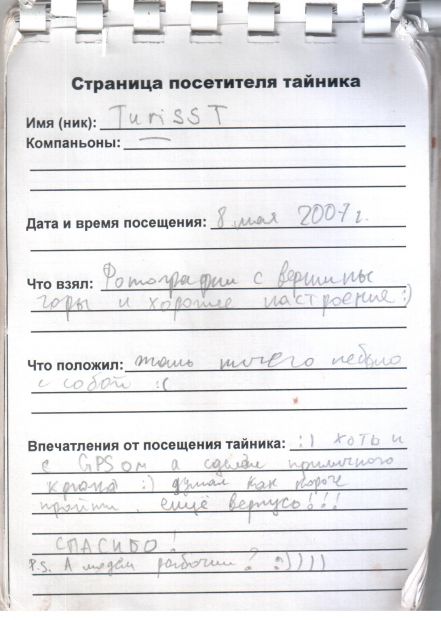 Страница посетителя тайника
Имя (ник): TuriSST
Компаньоны: —
Дата и время посещения: 8 мая 2007 г.
Что взял: Фотографии с вершины
горы и хорошее настроение :)
Что положил: жаль ничего небыло
с собой :(
Впечатления от посещения тайника: :) хоть и
с GPSом а сделал приличного
крюка :) думал как короче
пройти, ещё вернусь!!!
СПАСИБО!
P.S. А модем рабочий? :)))))